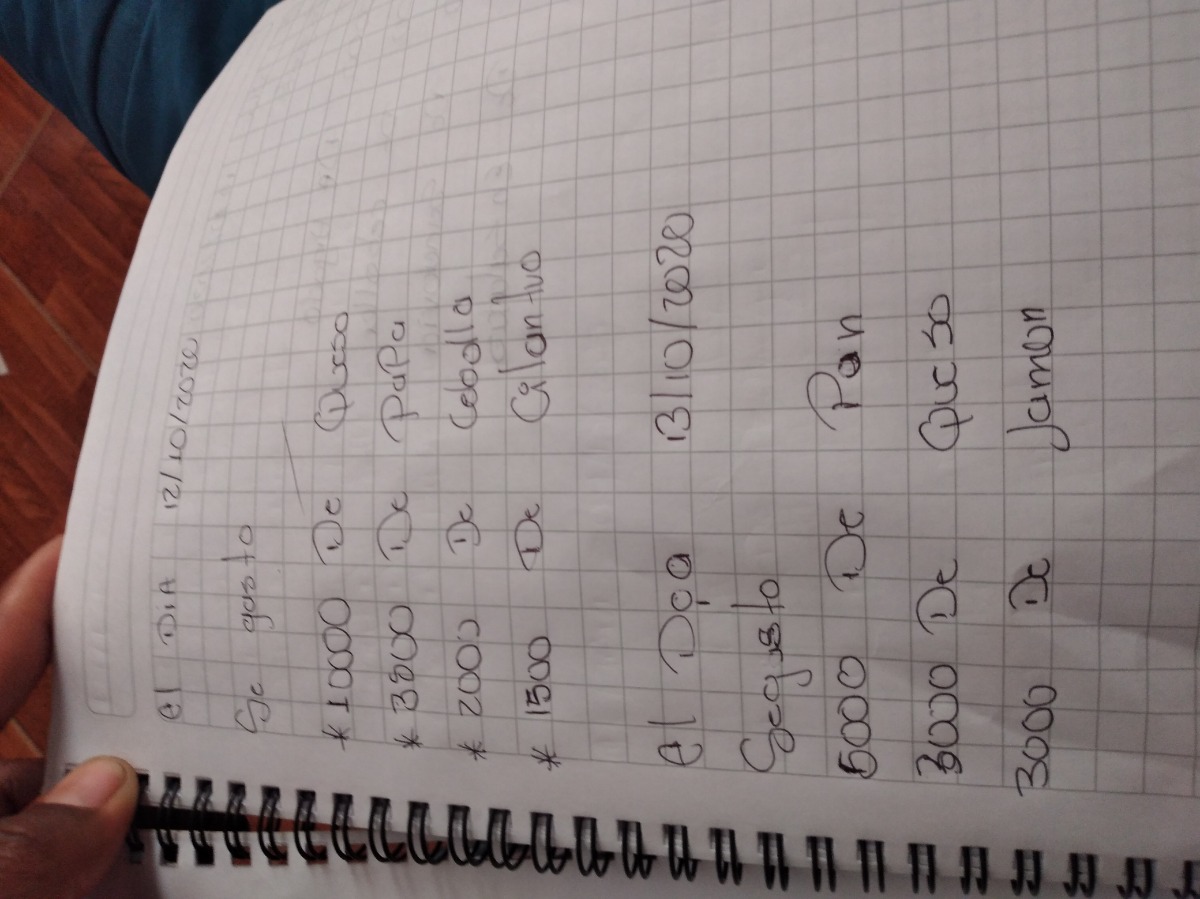 El DiA 12/10/2020
Se gasto
* 10000 De Queso
* 3800 De PaPa
* 2000 De Cebolla
* 1500 De Cilantro
El Dia 13/10/2020
Se gasto
5000 De Pan
3000 De Queso
3000 De Jamon